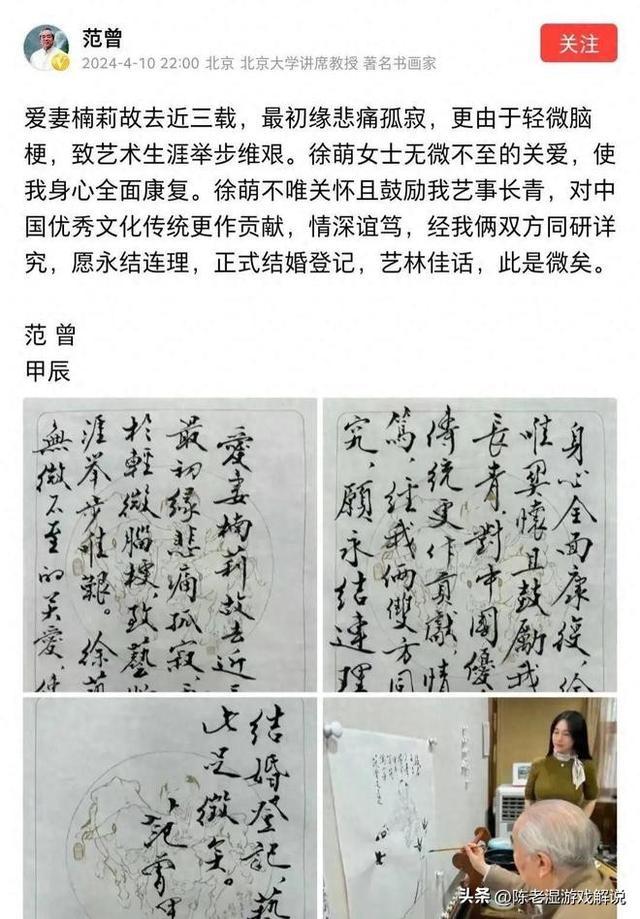 范曾
关注
2024-4-10 22:00 北京 北京大学讲席教授 著名书画家
爱妻楠莉故去近三载，最初缘悲痛孤寂，更由于轻微脑
梗，致艺术生涯举步维艰。徐萌女士无微不至的关爱，使
我身心全面康复。徐萌不唯关怀且鼓励我艺事长青，对中
国优秀文化传统更作贡献，情深谊笃，经我俩双方同研详
究，愿永结连理，正式结婚登记，艺林佳话，此是微矣。
范 曾
甲辰
愛妻楠莉故去近三
最初缘悲痛孤寂
於輕微腦梗，致藝
涯举步维艱。徐
無微不至的关愛，使
身心全面康復，徐
唯関懷且鼓勵我
長青，對中國優
传統更作貢獻，情
篤，經我俩雙方同
究，願永结連理
结婚登记，藝
此足徵矣。
范曾甲
头条 @陈老湿游戏解说